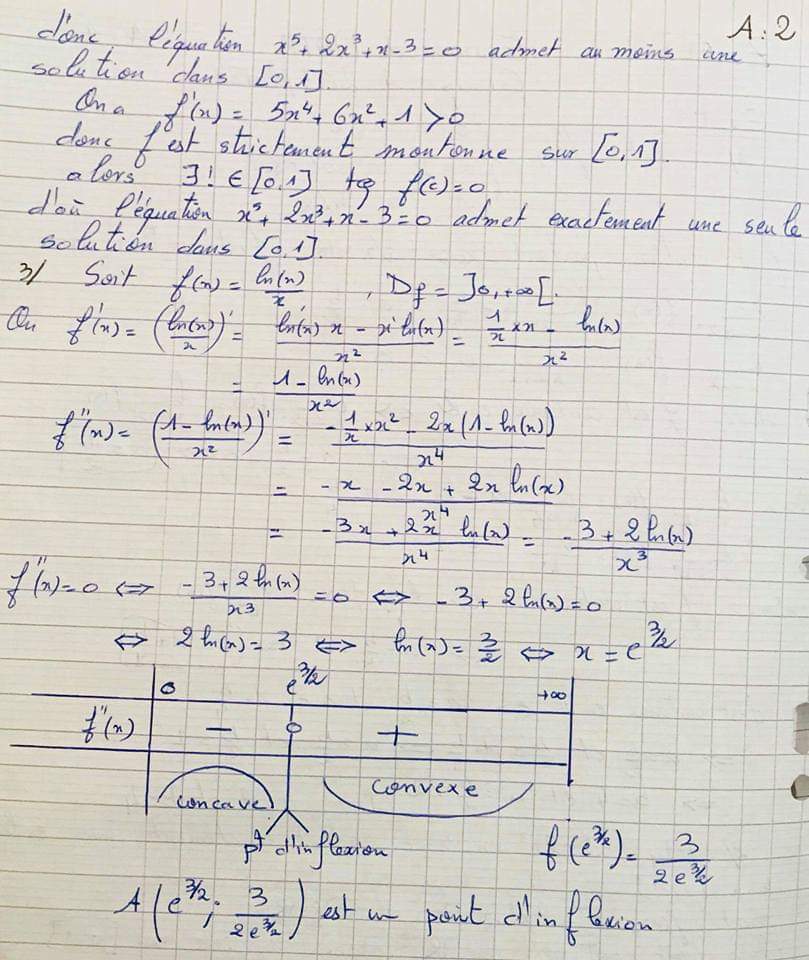 A:2
donc l'équation x⁵ + 2x³ + x - 3 = 0 admet au moins une
solution dans [0,1].
On a f'(x) = 5x⁴ + 6x² + 1 > 0
donc f est strictement montonne sur [0,1].
alors ∃! ∈ [0,1] tq f(c) = 0
d'où l'équation x⁵ + 2x³ + x - 3 = 0 admet exactement une seule
solution dans [0,1].
3/ Soit f(x) = ln(x)/x , Df = ]0,+∞[.
On f'(x) = (ln(x)/x)' = (ln'(x) x - x' ln(x))/x² = (1/x × x - ln(x))/x²
= (1 - ln(x))/x²
f''(x) = ((1 - ln(x))/x²)' = (-1/x × x² - 2x(1 - ln(x)))/x⁴
= (-x - 2x + 2x ln(x))/x⁴
= (-3x + 2x ln(x))/x⁴ = (-3 + 2 ln(x))/x³
f''(x) = 0 ⇔ (-3 + 2 ln(x))/x³ = 0 ⇔ -3 + 2 ln(x) = 0
⇔ 2 ln(x) = 3 ⇔ ln(x) = 3/2 ⇔ x = e^(3/2)
0 e^(3/2) +∞
f''(x) - 0 +
concave convexe
pt d'inflexion f(e^(3/2)) = 3/(2e^(3/2))
A(e^(3/2); 3/(2e^(3/2))) est un point d'inflexion